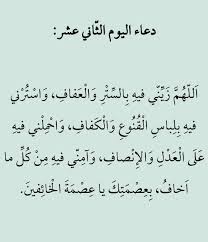 دعاء اليوم الثّاني عشر:
اَللّهُمَّ زَيِّنّي فيهِ بِالسِّتْرِ وَالْعَفافِ، وَاسْتُرْني
فيهِ بِلِباسِ الْقُنُوعِ وَالْكَفافِ، وَاحْمِلْني فيهِ
عَلَى الْعَدْلِ وَالْاِنْصافِ، وَآمِنّي فيهِ مِنْ كُلِّ ما
اَخافُ، بِعِصْمَتِكَ يا عِصْمَةَ الْخائِفينَ.